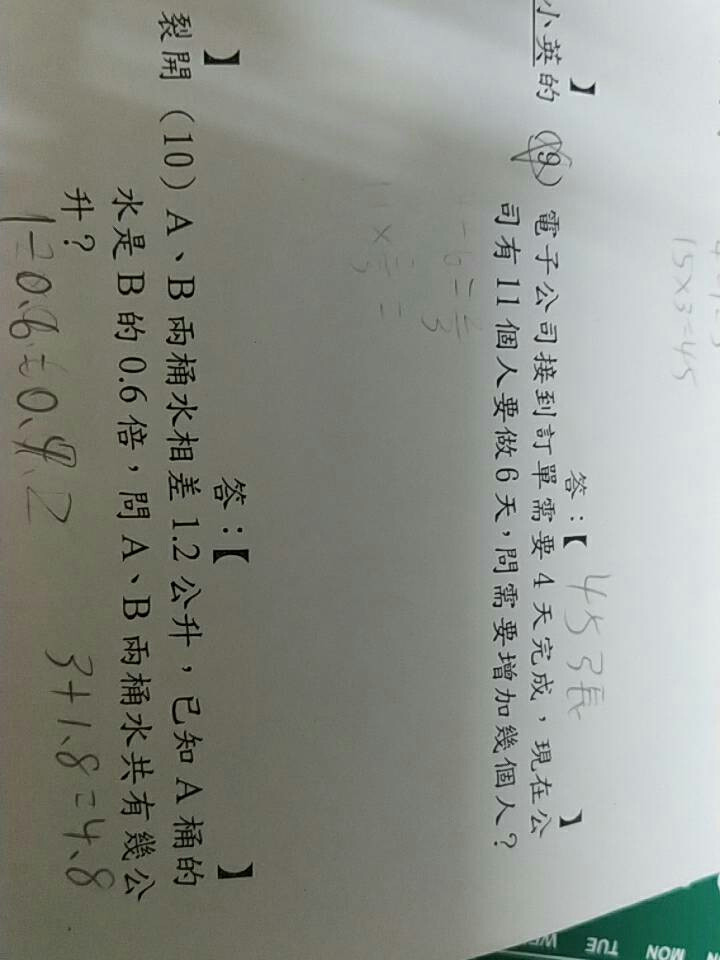 15×3=45
小英的
】
答:【 45張 】
(9) 電子公司接到訂單需要4天完成,現在公
司有11個人要做6天,問需要增加幾個人?
答:【 】
】
裂開
(10) A、B兩桶水相差1.2公升,已知A桶的
水是B的0.6倍,問A、B兩桶水共有幾公
升?
3+1.8=4.8
MON
TUE